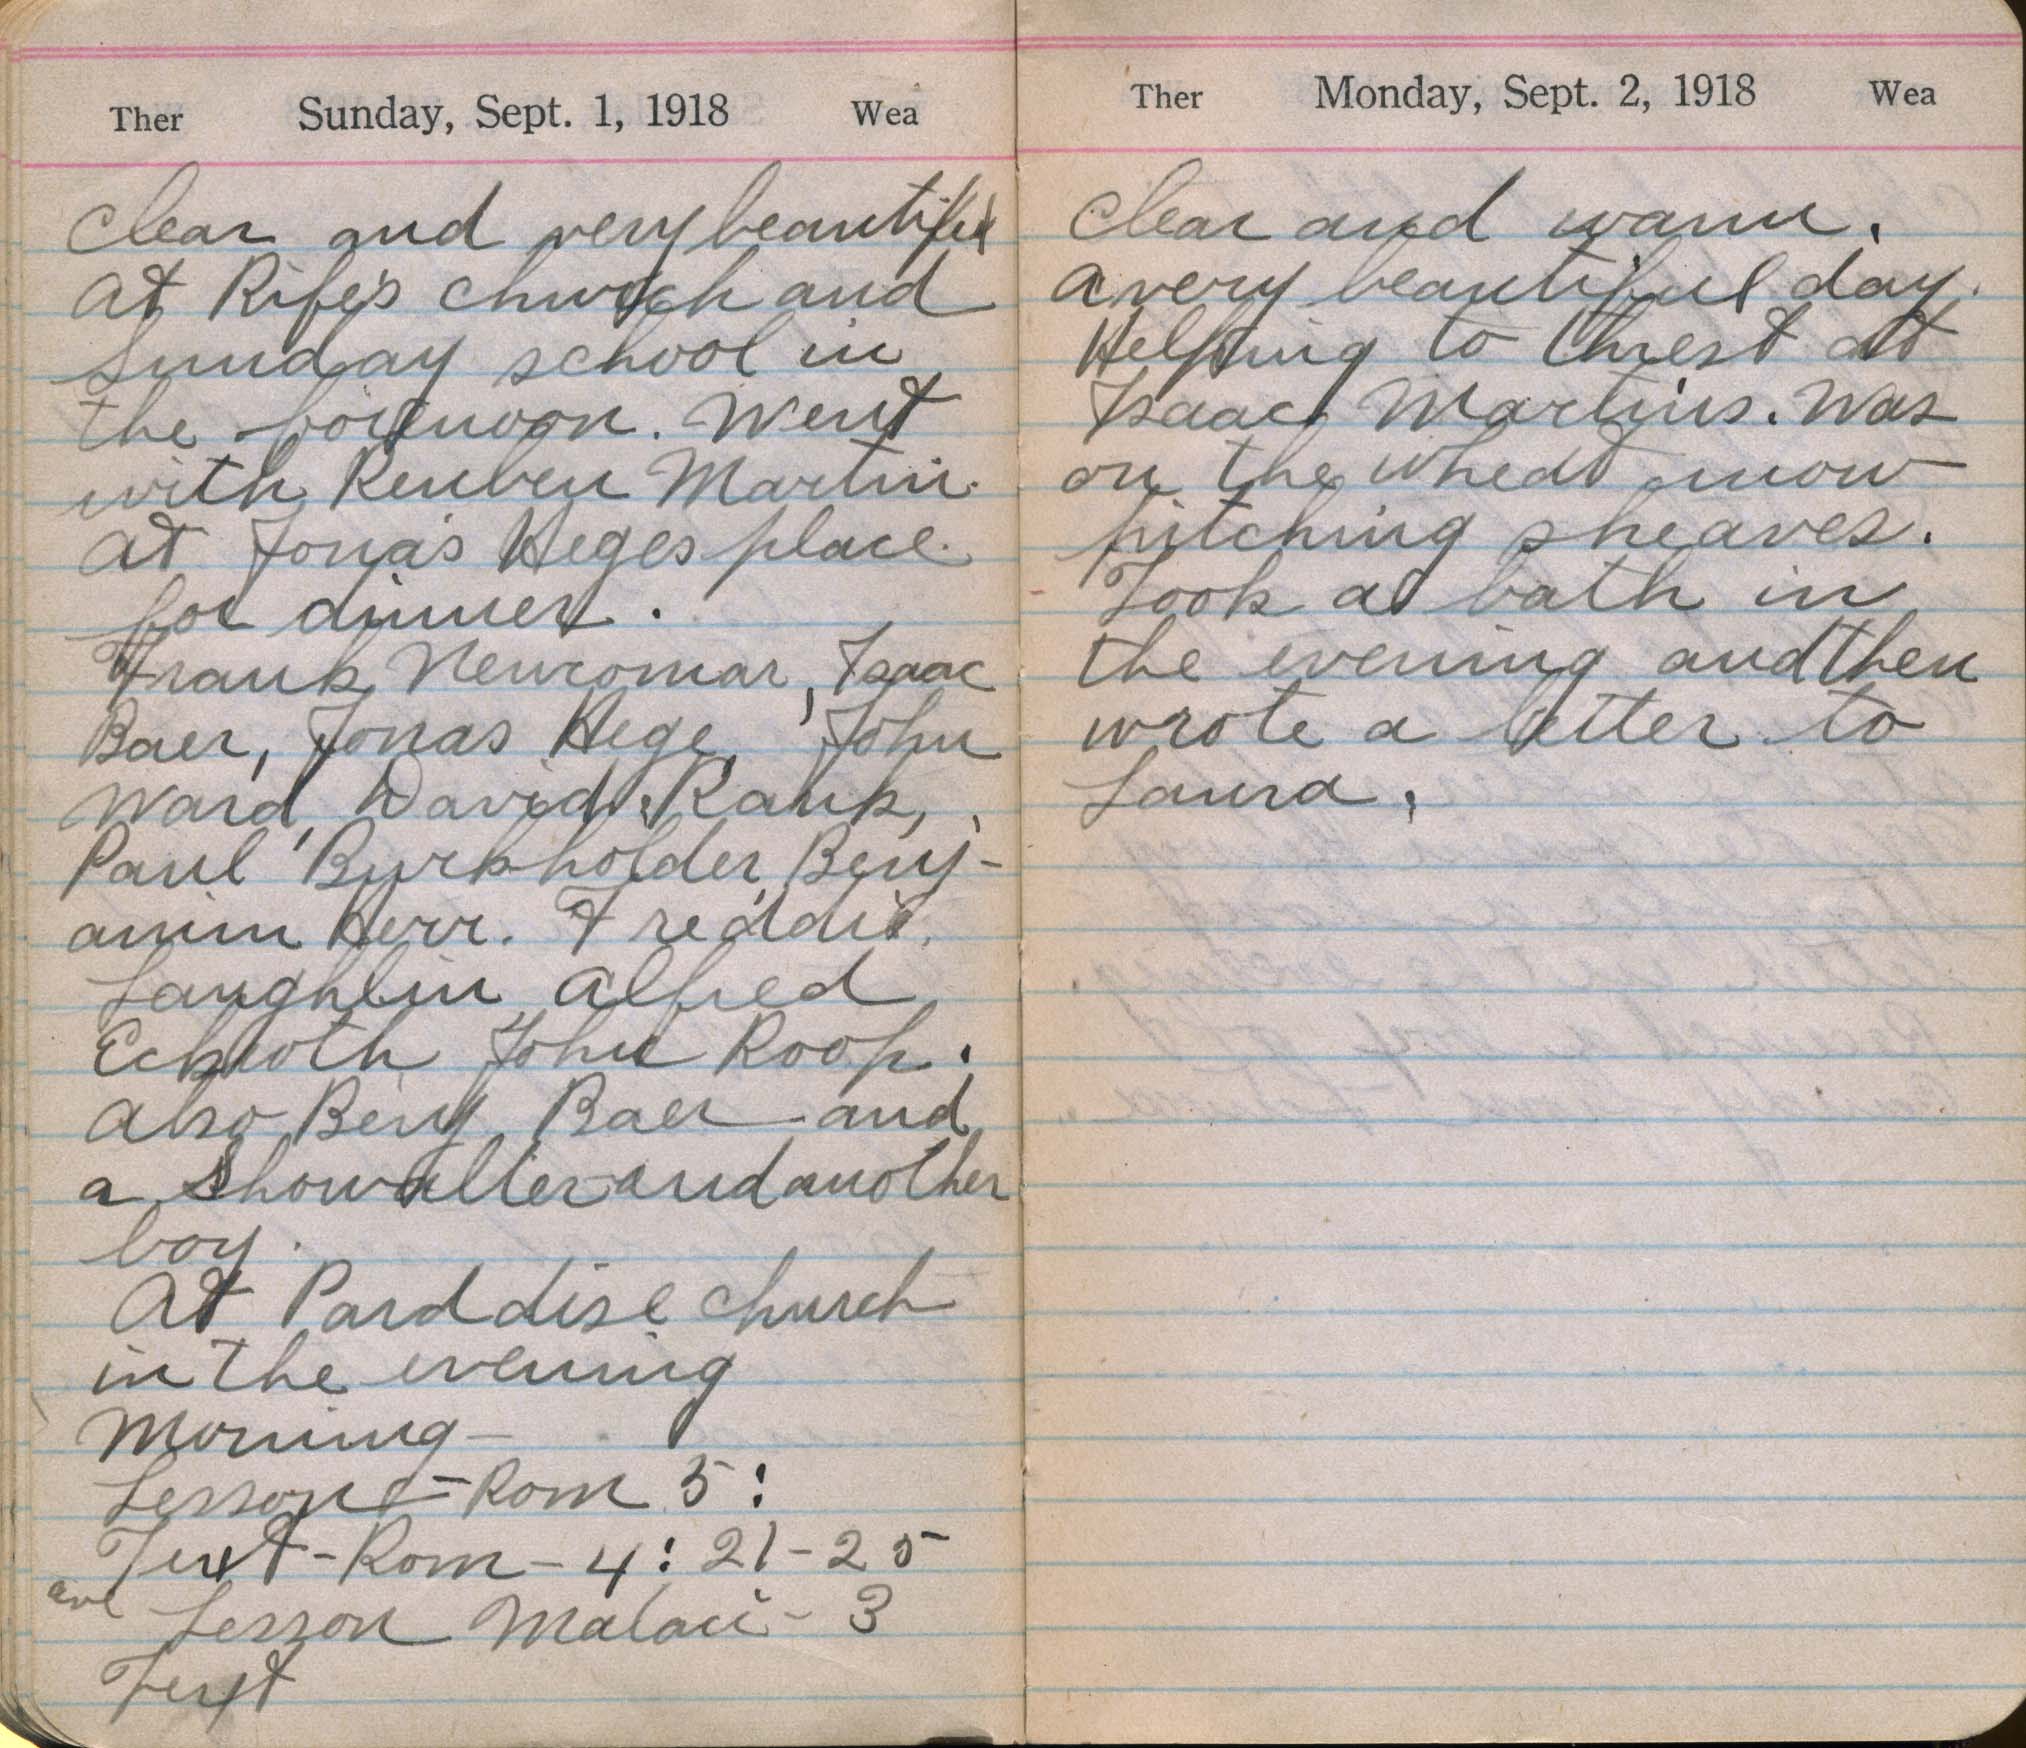 Ther Sunday, Sept. 1, 1918 Wea
Clear and very beautiful
At Rife's church and
Sunday school in
the forenoon. Went
with Reuben Martin.
At Jonas Heges place
for dinner.
Frank Newcomar, Isaac
Baer, Jonas Hege, John
Ward, David Rank,
Paul Burkholder, Benj-
amin Kerr. Freddie
Laughlin Alfred
Eckroth John Roop.
Also Benj Baer and
a Showalter and another
boy.
At Parddise church
in the evening
Morning -
Lesson - Rom 5:
Text - Rom - 4: 21-25
eve Lesson Malaci - 3
Text
Ther Monday, Sept. 2, 1918 Wea
Clear and warm.
A very beautiful day.
Helping to threst at
Isaac Martins. Was
on the wheat mow
pitching sheaves.
Took a bath in
the evening and then
wrote a letter to
Laura.